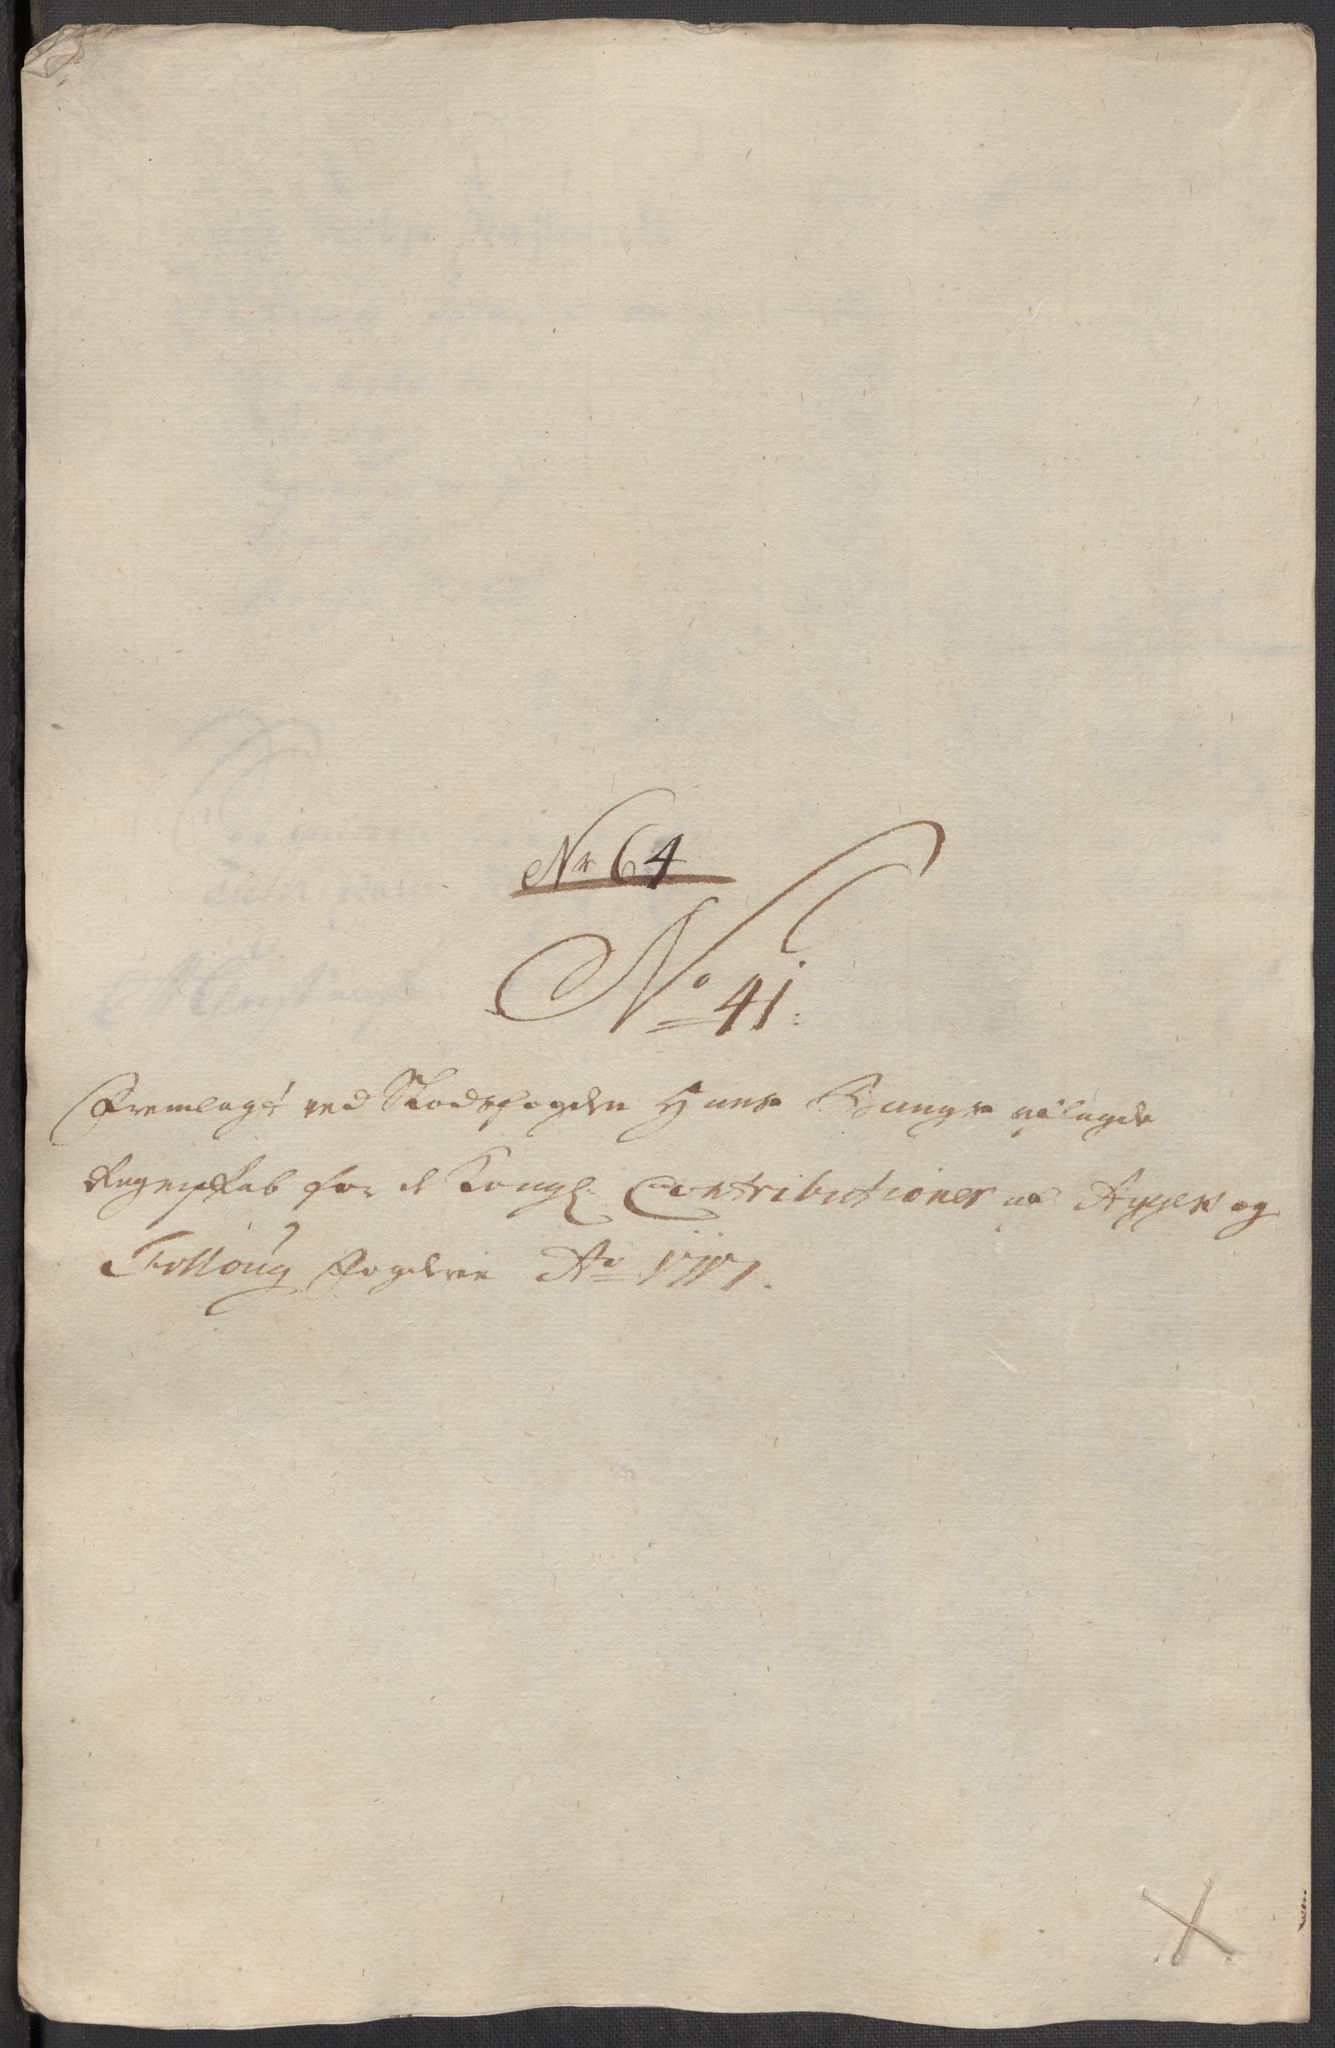 Nr 64
No 41:
Fremlagt ved Stadsfogden Hans Bunges aflagde
Regenskab for de Kongl: Contributioner af Agger og
Folloug fogderie Ao 1711.